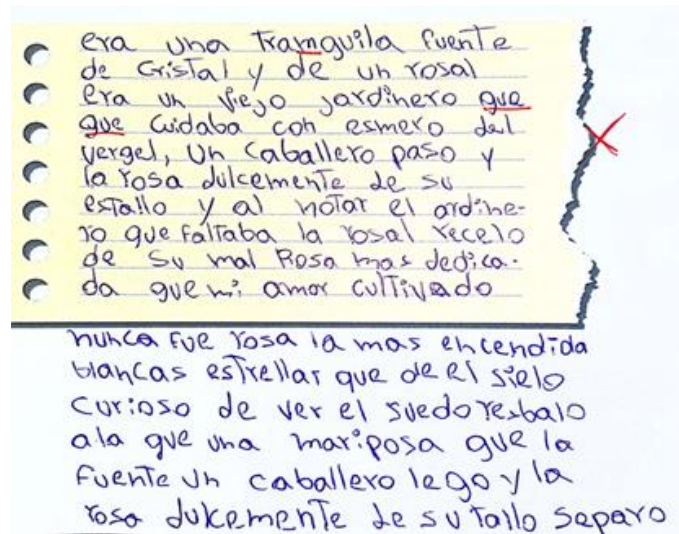 era una tranquila fuente
de Cristal y de un rosal
era un viejo jardinero que
que cuidaba con esmero del
vergel, Un Caballero paso y
la rosa dulcemente de su
estallo y al notar el ardine-
ro que faltaba la rosal recelo
de su mal Rosa mas dedica-
da que mi amor cultivado
nunca fue rosa la mas encendida
blancas estrellas que de el sielo
curioso de ver el suedo resbalo
ala que una mariposa que la
fuente un caballero lego y la
rosa dulcemente de su tallo separo